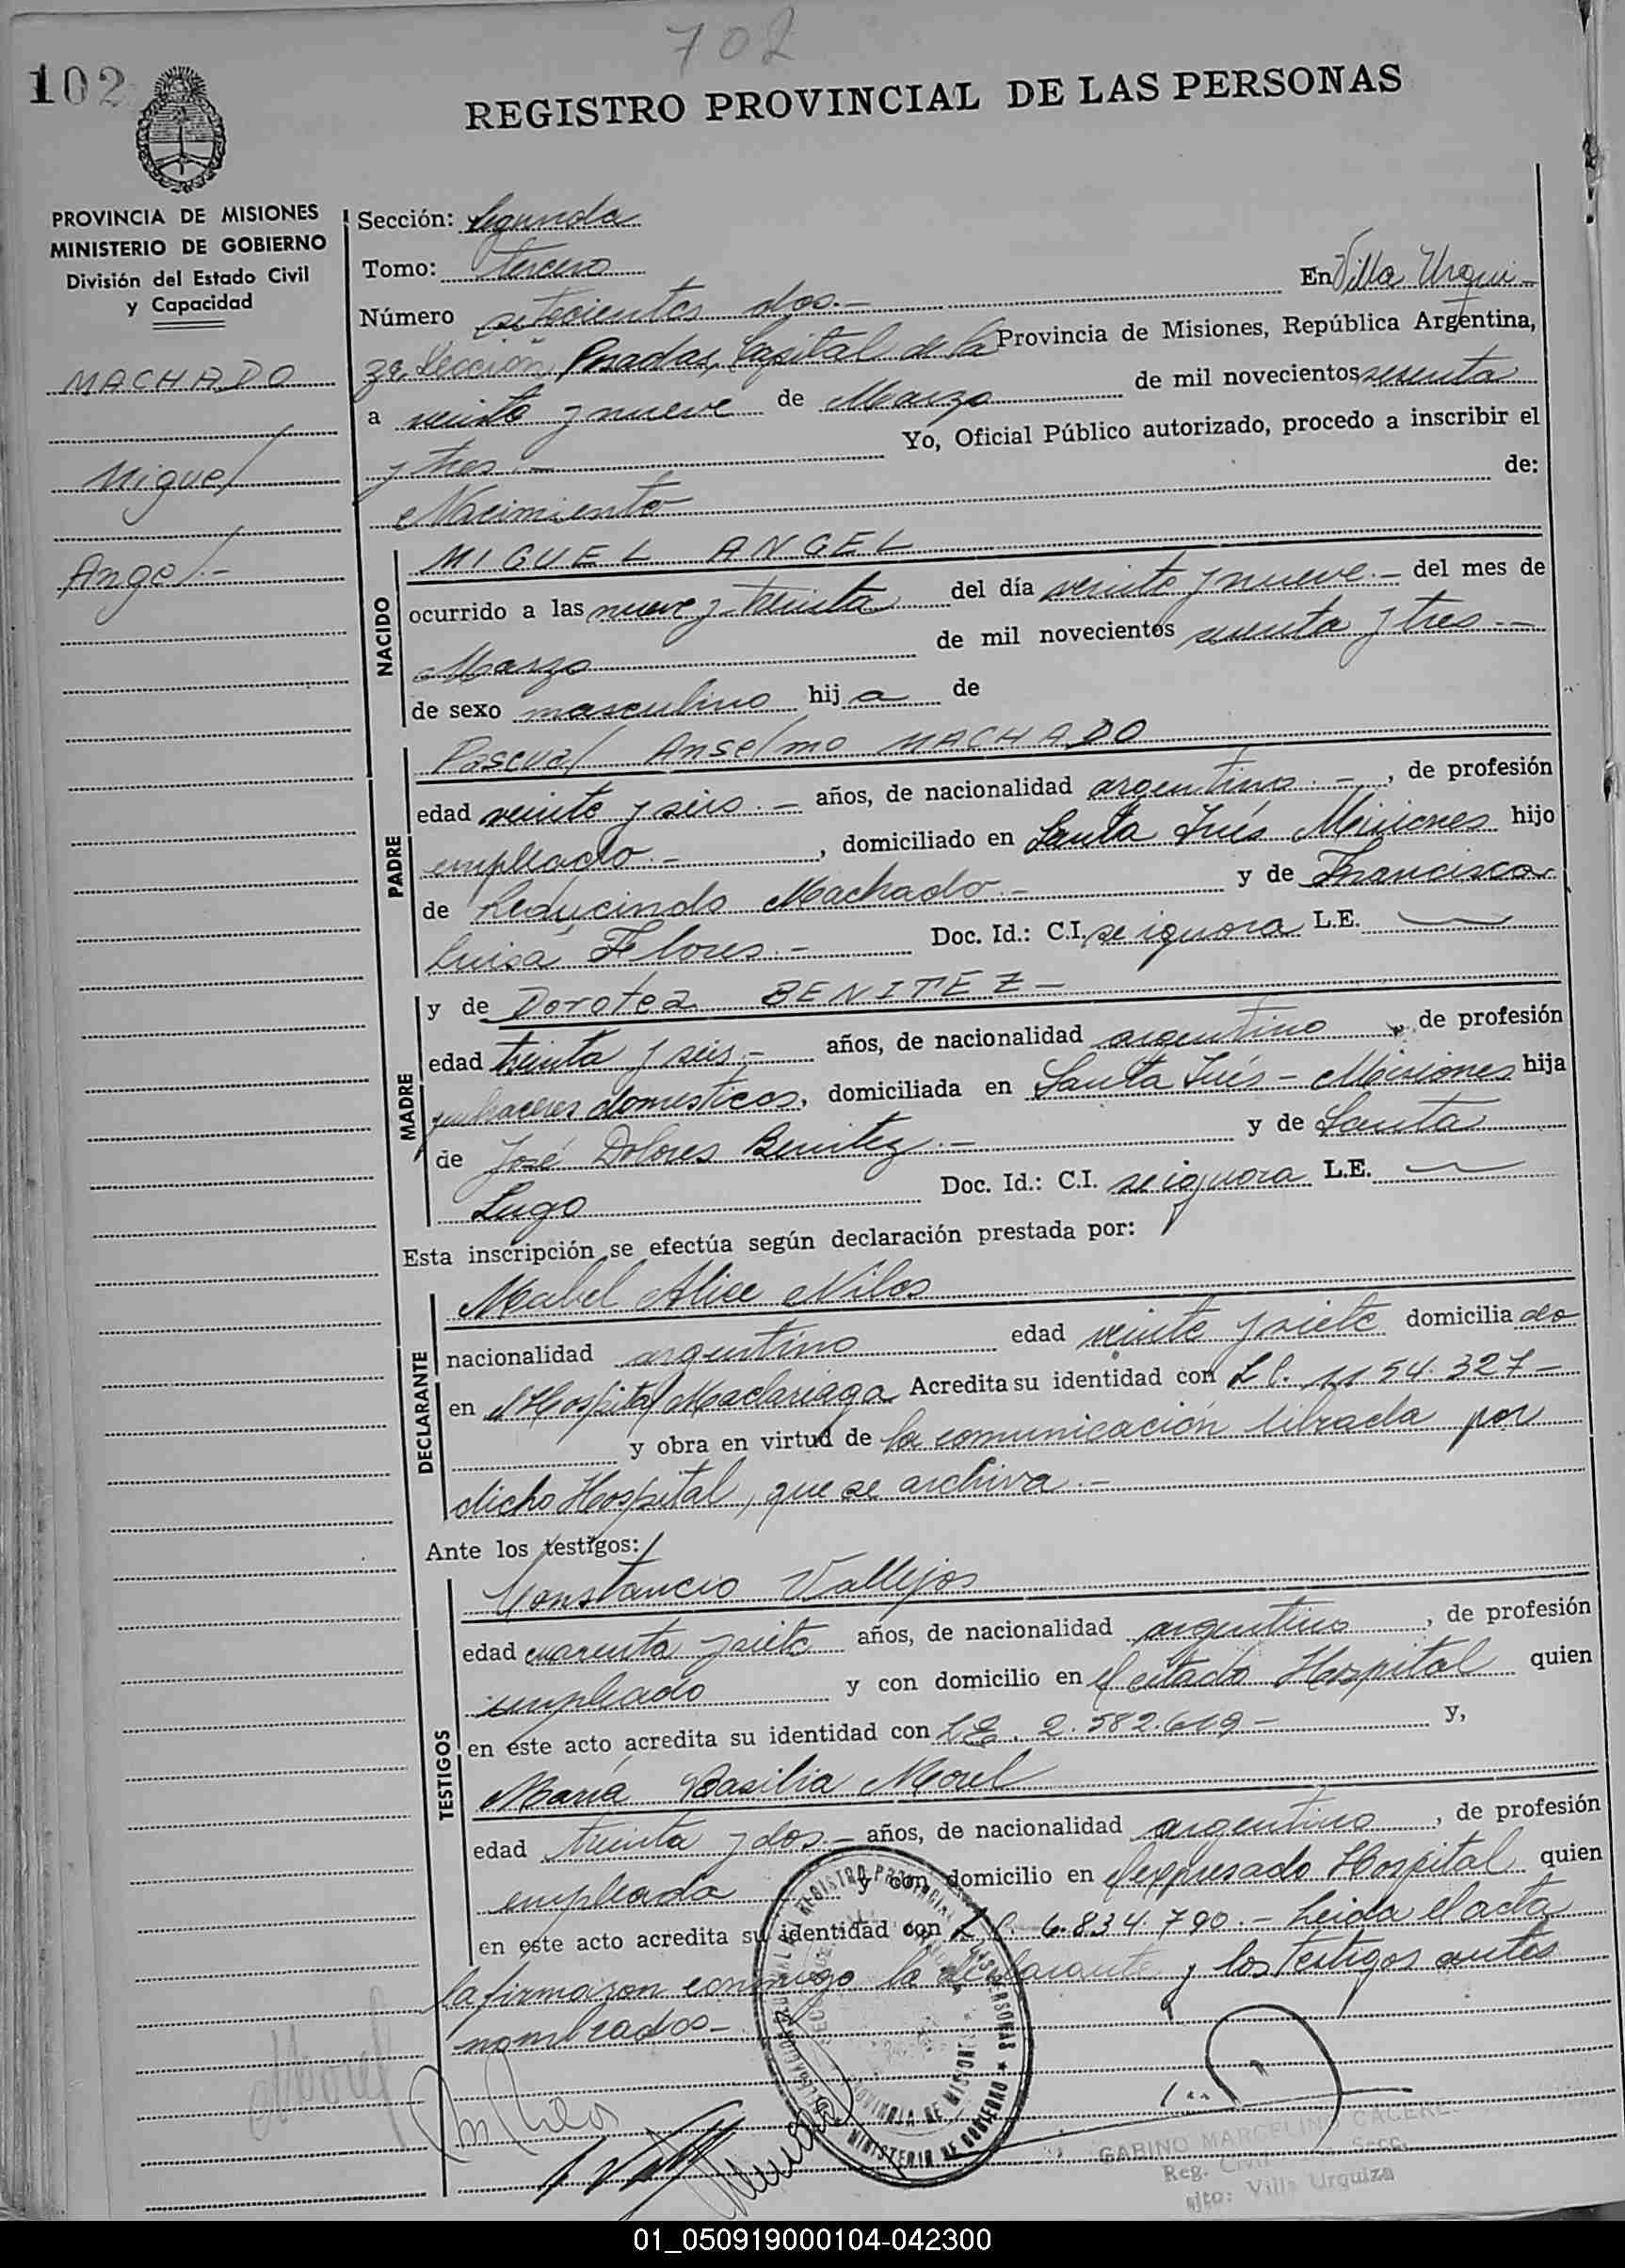 702
102
REGISTRO PROVINCIAL DE LAS PERSONAS
PROVINCIA DE MISIONES
MINISTERIO DE GOBIERNO
División del Estado Civil
y Capacidad
MACHADO
Miguel
Angel.-
Sección: Segunda
Tomo: tercero
Número setecientos dos.- En Villa Urqui-
za, Sección, Posadas, Capital de la Provincia de Misiones, República Argentina,
a veinte y nueve de Marzo de mil novecientos sesenta
y tres.- Yo, Oficial Público autorizado, procedo a inscribir el
Nacimiento de:
NACIDO
MIGUEL ANGEL
ocurrido a las nueve y treinta del día veinte y nueve.- del mes de
Marzo de mil novecientos sesenta y tres.-
de sexo masculino hij a de
PADRE
Pascual Anselmo MACHADO
edad veinte y seis.- años, de nacionalidad argentino.-, de profesión
empleado.-, domiciliado en Santa Inés Misiones hijo
de Reducindo Machado.- y de Francisca
Luisa Flores.- Doc. Id.: C.I. se ignora L.E.
MADRE
y de Dorotea BENITEZ-
edad treinta y seis.- años, de nacionalidad argentino, de profesión
quehaceres domesticos, domiciliada en Santa Inés - Misiones hija
de José Dolores Benitez.- y de Santa
Lugo Doc. Id.: C.I. se ignora L.E.
Esta inscripción se efectúa según declaración prestada por:
DECLARANTE
Mabel Alice
nacionalidad argentino edad veinte y siete domicilia do
en Hospital Madariaga Acredita su identidad con L C. 1154.327-
y obra en virtud de la comunicación librada por
dicho Hospital, que se archiva.-
Ante los testigos:
TESTIGOS
Constancio Vallejos
edad cuarenta y siete años, de nacionalidad argentino, de profesión
empleado y con domicilio en el citado Hospital quien
en este acto acredita su identidad con LE. 2.582.619- y,
María Basilia Morel
edad treinta y dos.- años, de nacionalidad argentino, de profesión
empleada y con domicilio en el expresado Hospital quien
en este acto acredita su identidad con L.C. 6.834.790.- Leida el acta
la firmaron conmigo la declarante y los testigos antes
nombrados-
REGISTRO PROVINCIAL DE LAS PERSONAS
PROVINCIA DE MISIONES
MINISTERIO DE GOBIERNO
GABINO MARCELINO CACERES
Reg. Civil Secc.
Villa Urquiza
01_050919000104-042300